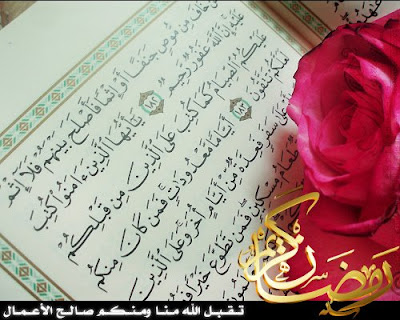 خَافَ مِن مُّوصٍ جَنَفًا أَوْ إِثْمًا فَأَصْلَحَ بَيْنَهُمْ فَلَا إِثْمَ
عَلَيْهِ إِنَّ اللَّهَ غَفُورٌ رَّحِيمٌ ١٨٢ يَٰأَيُّهَا الَّذِينَ ءَامَنُوا كُتِبَ
عَلَيْكُمُ الصِّيَامُ كَمَا كُتِبَ عَلَى الَّذِينَ مِن قَبْلِكُمْ
لَعَلَّكُمْ تَتَّقُونَ ١٨٣ أَيَّامًا مَّعْدُودَٰتٍ فَمَن كَانَ مِنكُم
عَلَىٰ سَفَرٍ فَعِدَّةٌ مِّنْ أَيَّامٍ أُخَرَ وَعَلَى الَّذِينَ
طَعَامُ مِسْكِينٍ فَمَن تَطَوَّعَ خَيْرًا
رمضان كريم
تقبل الله منا ومنكم صالح الأعمال